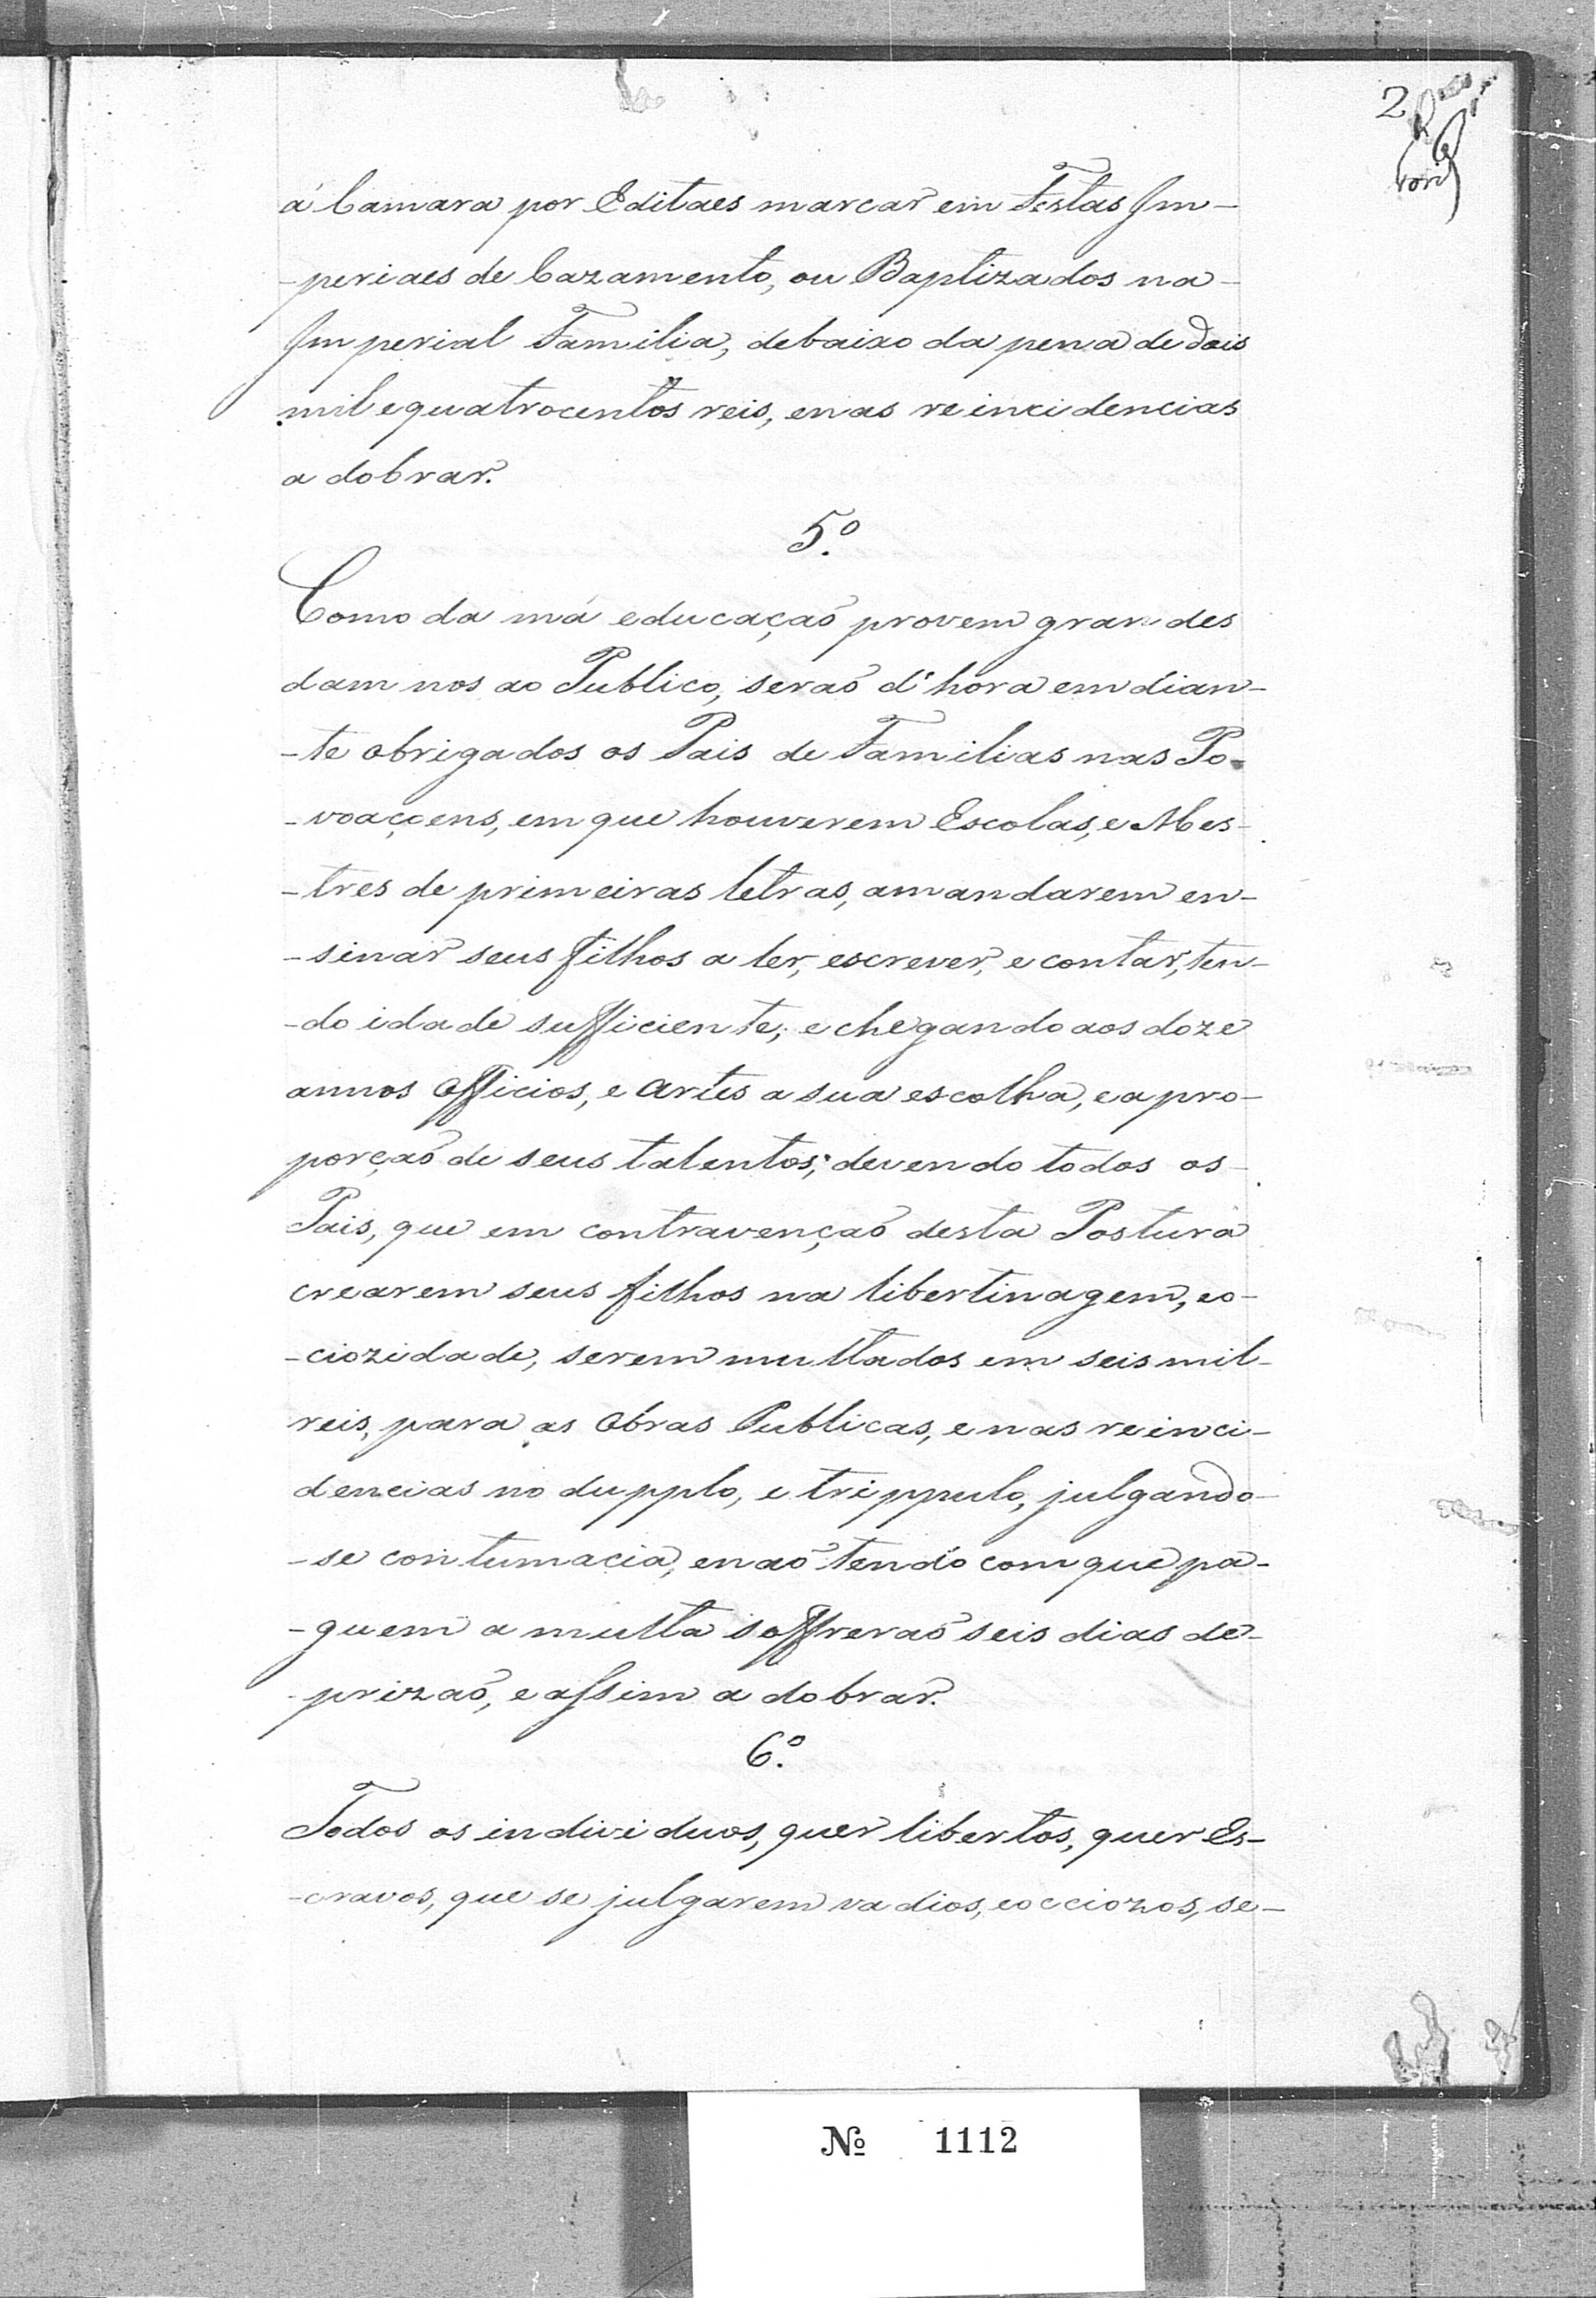 2
á Camara por Editaes marcar em Festas Im-
-periaes de Cazamento, ou Baptizados na-
Imperial Familia, debaixo da pena de dois
mil e quatrocentos reis, e nas reincidencias
a dobrar.
5.º
Como da má educaçaõ provem grandes
damnos ao Publico, seraõ d'hora em dian-
-te obrigados os Pais de Familias nas Po-
-voaçoens, em que houverem Escolas, e Mes-
-tres de primeiras letras, a mandarem en-
-sinar seus filhos a ler, escrever, e contar, ten-
-do idade sufficiente; e chegando aos doze
annos Officios, e Artes a sua escolha, e a pro-
porçaõ de seus talentos; devendo todos os-
Pais, que em contravençaõ desta Postura
crearem seus filhos na libertinagem, e o-
-ciozidade, serem multados em seis mil-
reis, para as Obras Publicas, e nas reinci-
dencias no dupplo, e trippulo, julgando-
-se contumacia, e naõ tendo com que pa-
-guem a multa soffreraõ seis dias de-
-prizaõ, e assim a dobrar.
6.º
Todos os individuos, quer libertos, quer Es-
-cravos, que se julgarem vadios, e occiozos, se-
№ 1112